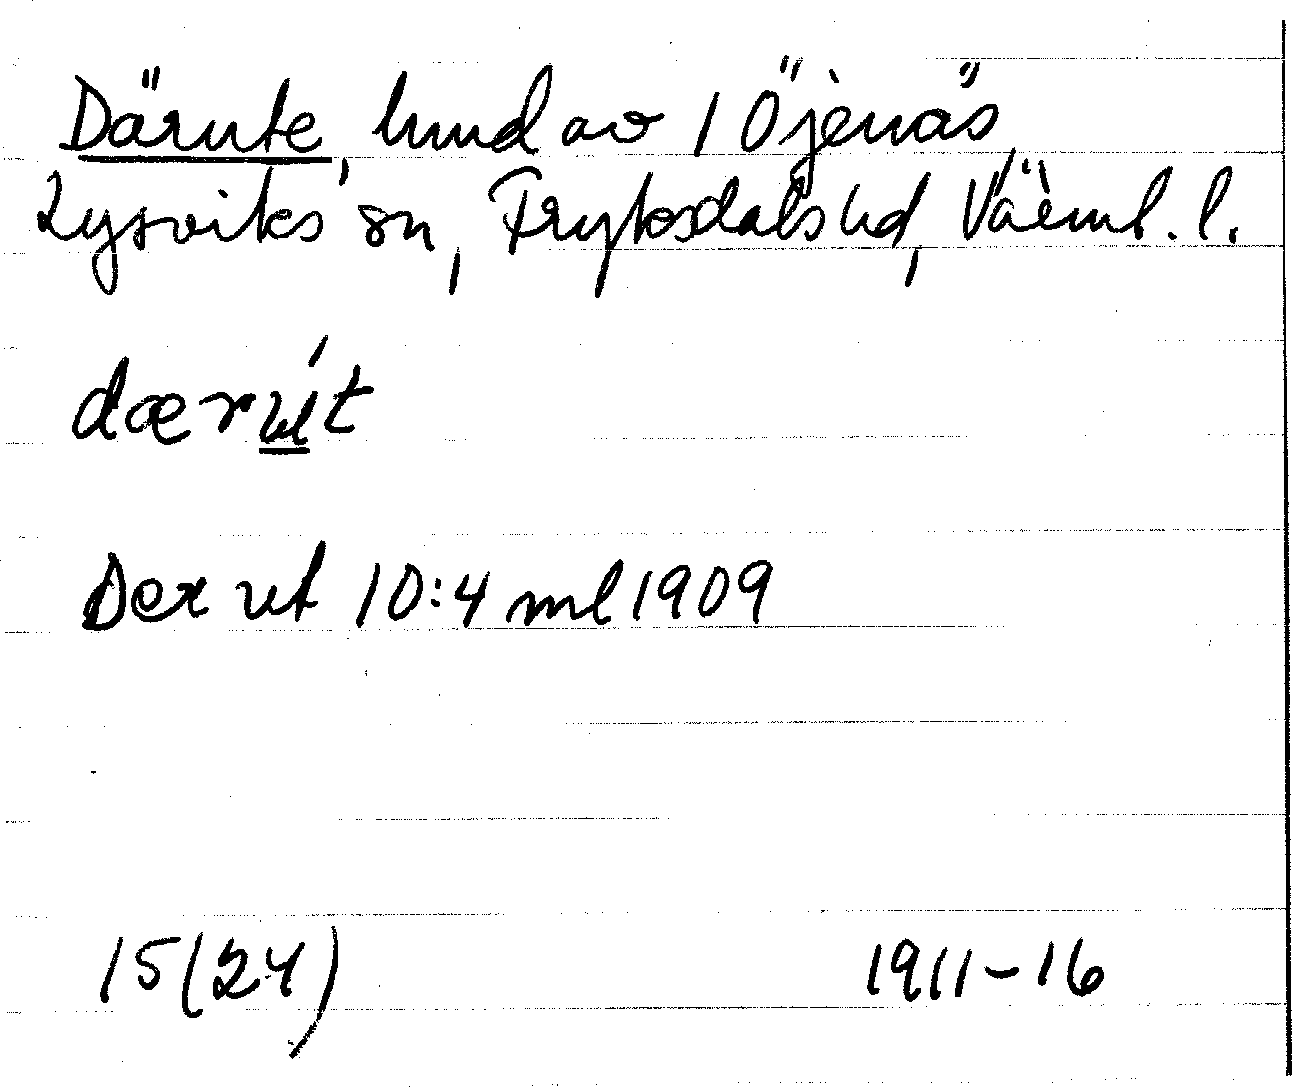 Därute, hmd av 1 Öjenäs,
Lysviks sn, Fryksdals hd, Värml. l.
dærút
Der ut 10:4 ml 1909
15(24) 1911-16